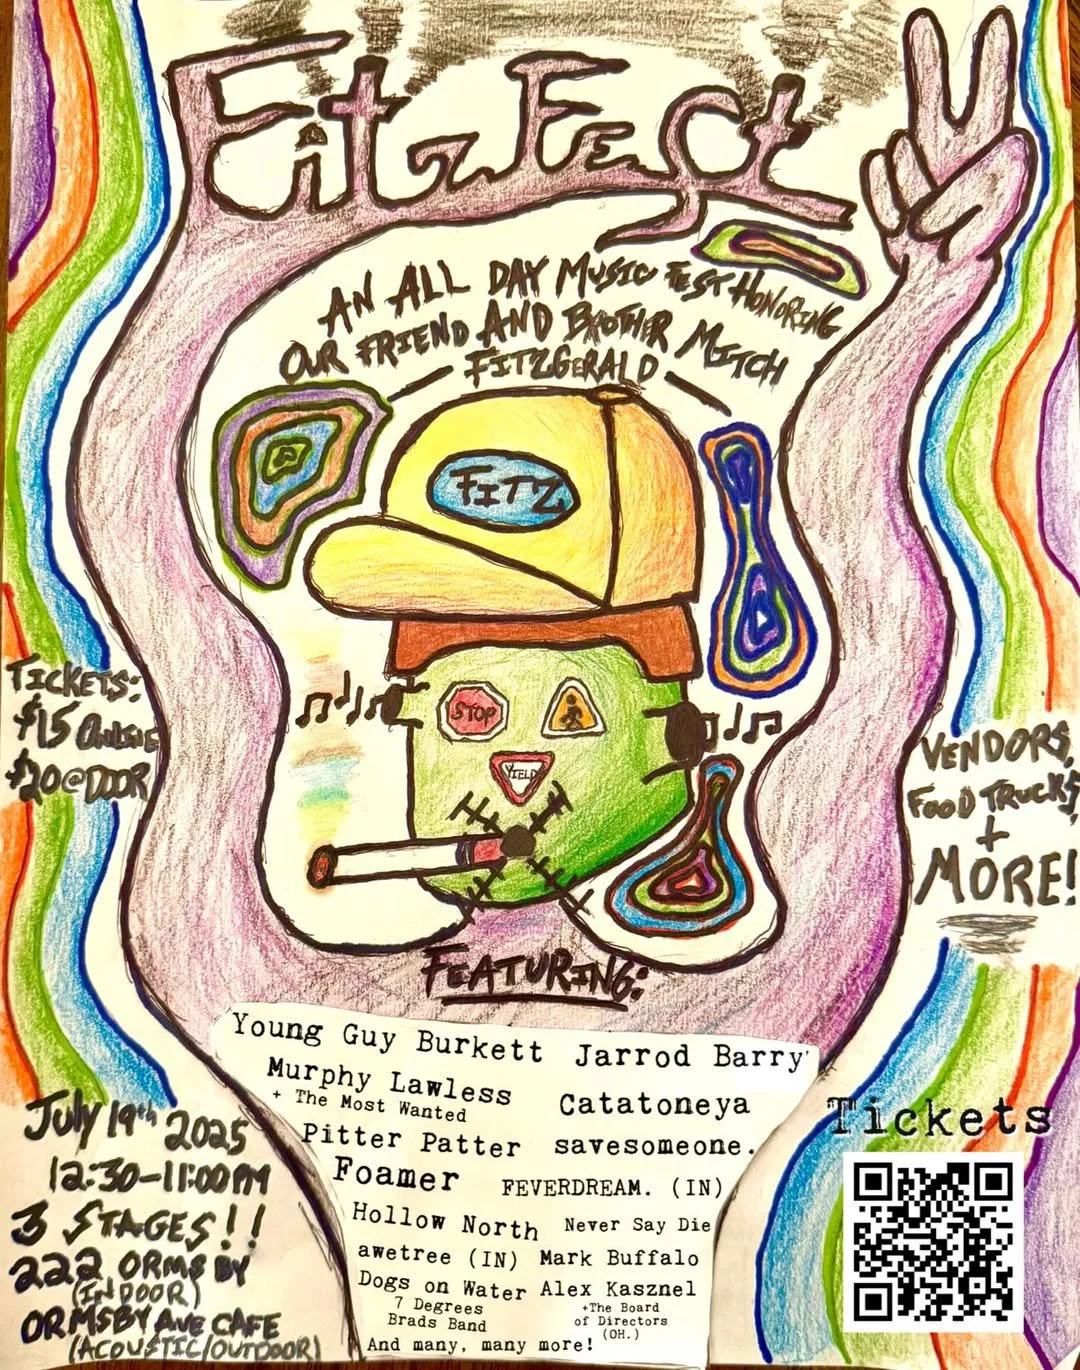 Fitz Fest
AN ALL DAY MUSIC FEST HONORING
OUR FRIEND AND BROTHER MITCH
FITZGERALD
FITZ
STOP
YIELD
TICKETS:
$15 ONLINE
$20@DOOR
VENDORS,
FOOD TRUCKS,
+
MORE!
FEATURING:
Young Guy Burkett Jarrod Barry
Murphy Lawless
+ The Most Wanted
Catatoneya
Pitter Patter savesomeone.
Foamer FEVERDREAM. (IN)
Hollow North Never Say Die
awetree (IN) Mark Buffalo
Dogs on Water Alex Kasznel
7 Degrees
Brads Band
+The Board
of Directors
(OH.)
And many, many more!
July 19th 2025
12:30-11:00PM
3 STAGES!!
222 ORMSBY
(INDOOR)
ORMSBY AVE CAFE
(ACOUSTIC/OUTDOOR)
Tickets